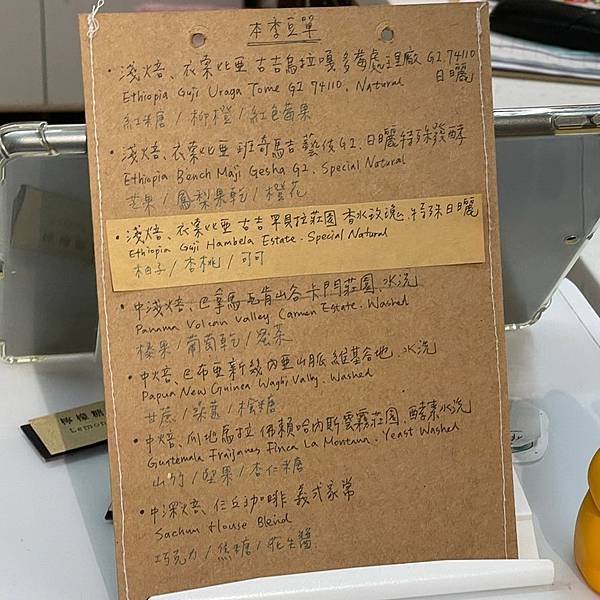 本季豆單
・淺焙、衣索比亞 古吉烏拉嘎 多莓處理廠 G1 74110 日曬
Ethiopia Guji Uraga Tome G1 74110. Natural
紅糖 / 柳橙 / 紅色莓果
・淺焙、衣索比亞 班奇馬吉 藝伎G2、日曬特殊發酵
Ethiopia Bench Maji Gesha G2. Special Natural
芒果 / 鳳梨果乾 / 橙花
・淺焙、衣索比亞 古吉 罕貝拉莊園 香水玫瑰、特殊日曬
Ethiopia Guji Hambela Estate. Special Natural
柚子 / 杏桃 / 可可
・中淺焙、巴拿馬 肯山谷 卡門莊園、水洗
Panama Volcan Valley Carmen Estate. Washed
榛果 / 葡萄乾 / 蜜棗
・中焙、巴布亞新幾內亞 山脈 維基谷地、水洗
Papua New Guinea Waghi Valley. Washed
甘蔗 / 菜葛 / 楓糖
・中焙、瓜地馬拉 佛賴哈內斯 雲霧莊園、酵素水洗
Guatemala Fraijanes Finca La Montana. Yeast Washed
山竹 / 堅果 / 杏仁糖
・中深焙、仨丘咖啡 義式家常
Sachuu House Blend
巧克力 / 焦糖 / 花生醬
檸檬糖
Lemon